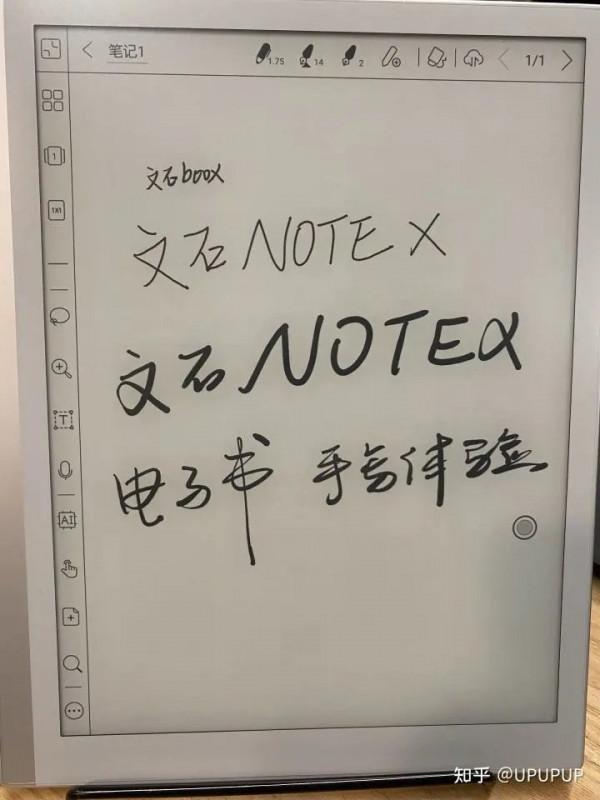 笔记1 1.75 14 2 1/1
1
1X1
文石boox
文石NOTE X
文石NOTEX
电子书 手写体验
T
AI
知乎 @UPUPUP